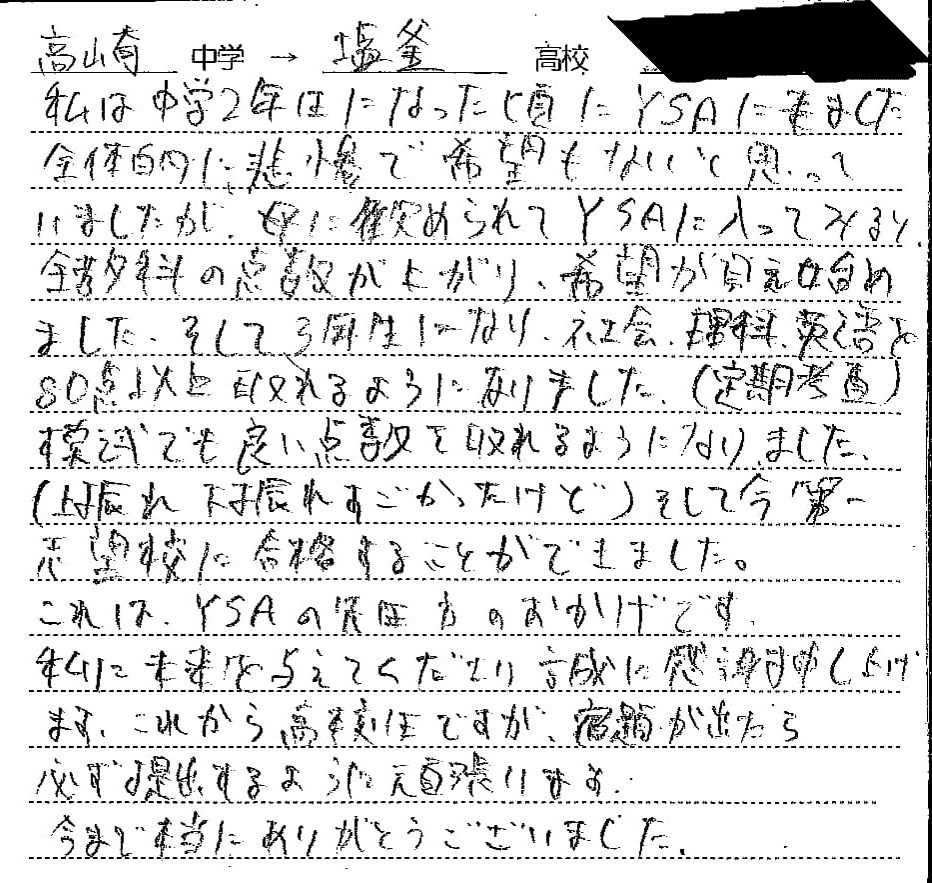 高崎 中学 → 塩釜 高校
私は中学2年生になった頃にYSAに来ました
全体的に悲惨で希望もないと思って
いましたが、母に勧められてYSAに入ってみると、
全教科の点数が上がり、希望が見え始め
ました。そして3年生になり、社会、理科、英語を
80点以上取れるようになりました。(定期考査)
模試でも良い点数を取れるようになりました。
(上振れ下振れすごかったけど)そして今第一
志望校に合格することができました。
これは、YSAの先生方のおかげです。
私に未来を与えてくださり誠に感謝申し上げ
ます。これから高校生ですが、宿題が出たら
必ず提出するように頑張ります。
今まで本当にありがとうございました。